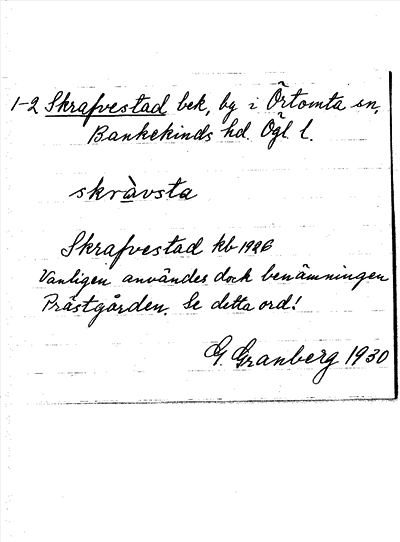 1-2 Skrafvestad bek, by i Örtomta sn,
Bankekinds hd. Ögl l.
skràvsta
Skrafvestad kb 1926
Vanligen användes dock benämningen
Prästgården. Se detta ord!
G. Granberg 1930